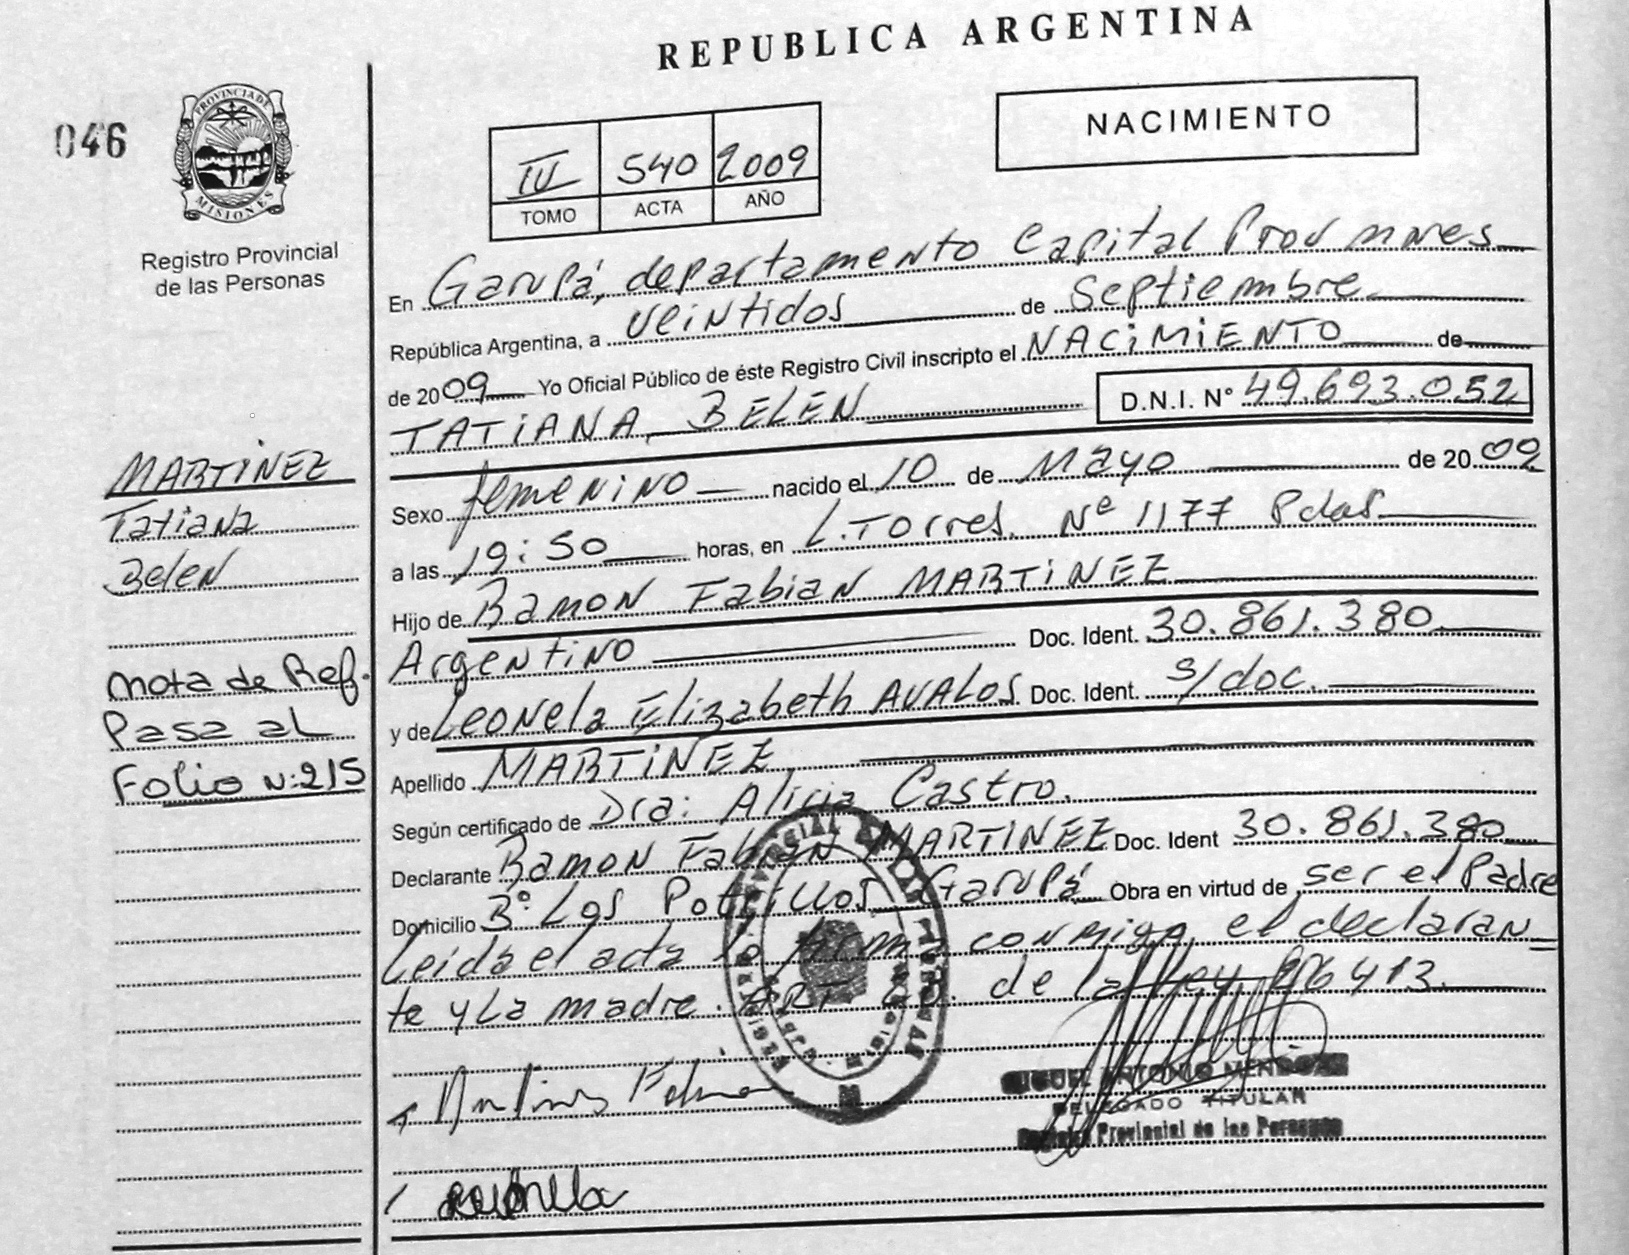 REPUBLICA ARGENTINA
046
PROVINCIA DE
MISIONES
Registro Provincial
de las Personas
NACIMIENTO
IV 540 2009
TOMO ACTA AÑO
En Garupá, departamento Capital Prov mnes
República Argentina, a veintidos de septiembre
de 2009 Yo Oficial Público de éste Registro Civil inscripto el NACIMIENTO de
TATIANA, BELEN D.N.I. N° 49.693.052
MARTINEZ
Tatiana
Belen
Sexo femenino nacido el 10 de Mayo de 2009
a las 19:50 horas, en L.Torres. Nº 1177 Pdas.
Hijo de Ramon Fabian MARTINEZ
Argentino Doc. Ident. 30.861.380
y de Leonela Elizabeth AVALOS Doc. Ident. s/doc.
Nota de Ref.
Pasa al
Folio N:215
Apellido MARTINEZ
Según certificado de Dra: Alicia Castro.
Declarante Ramon Fabian MARTINEZ Doc. Ident 30.861.380
Domicilio Bº Los Potrillos Garupá Obra en virtud de ser el Padre
Leida el acta lo firma conmigo el declaran_
te y La madre. ART de la Ley 26413.
MIGUEL ANTONIO MENDOZA
DELEGADO TITULAR
Registro Provincial de las Personas